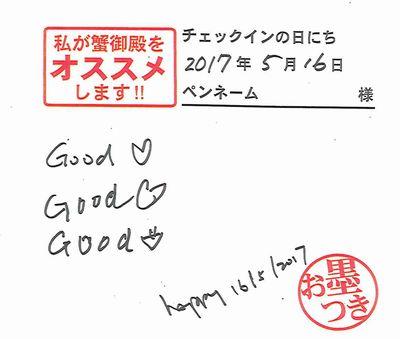 私が蟹御殿を
オススメ
します!!
チェックインの日にち
2017年5月16日
ペンネーム 様
Good ♡
Good ♡
Good ♡
happy 16/5/2017
お墨
つき